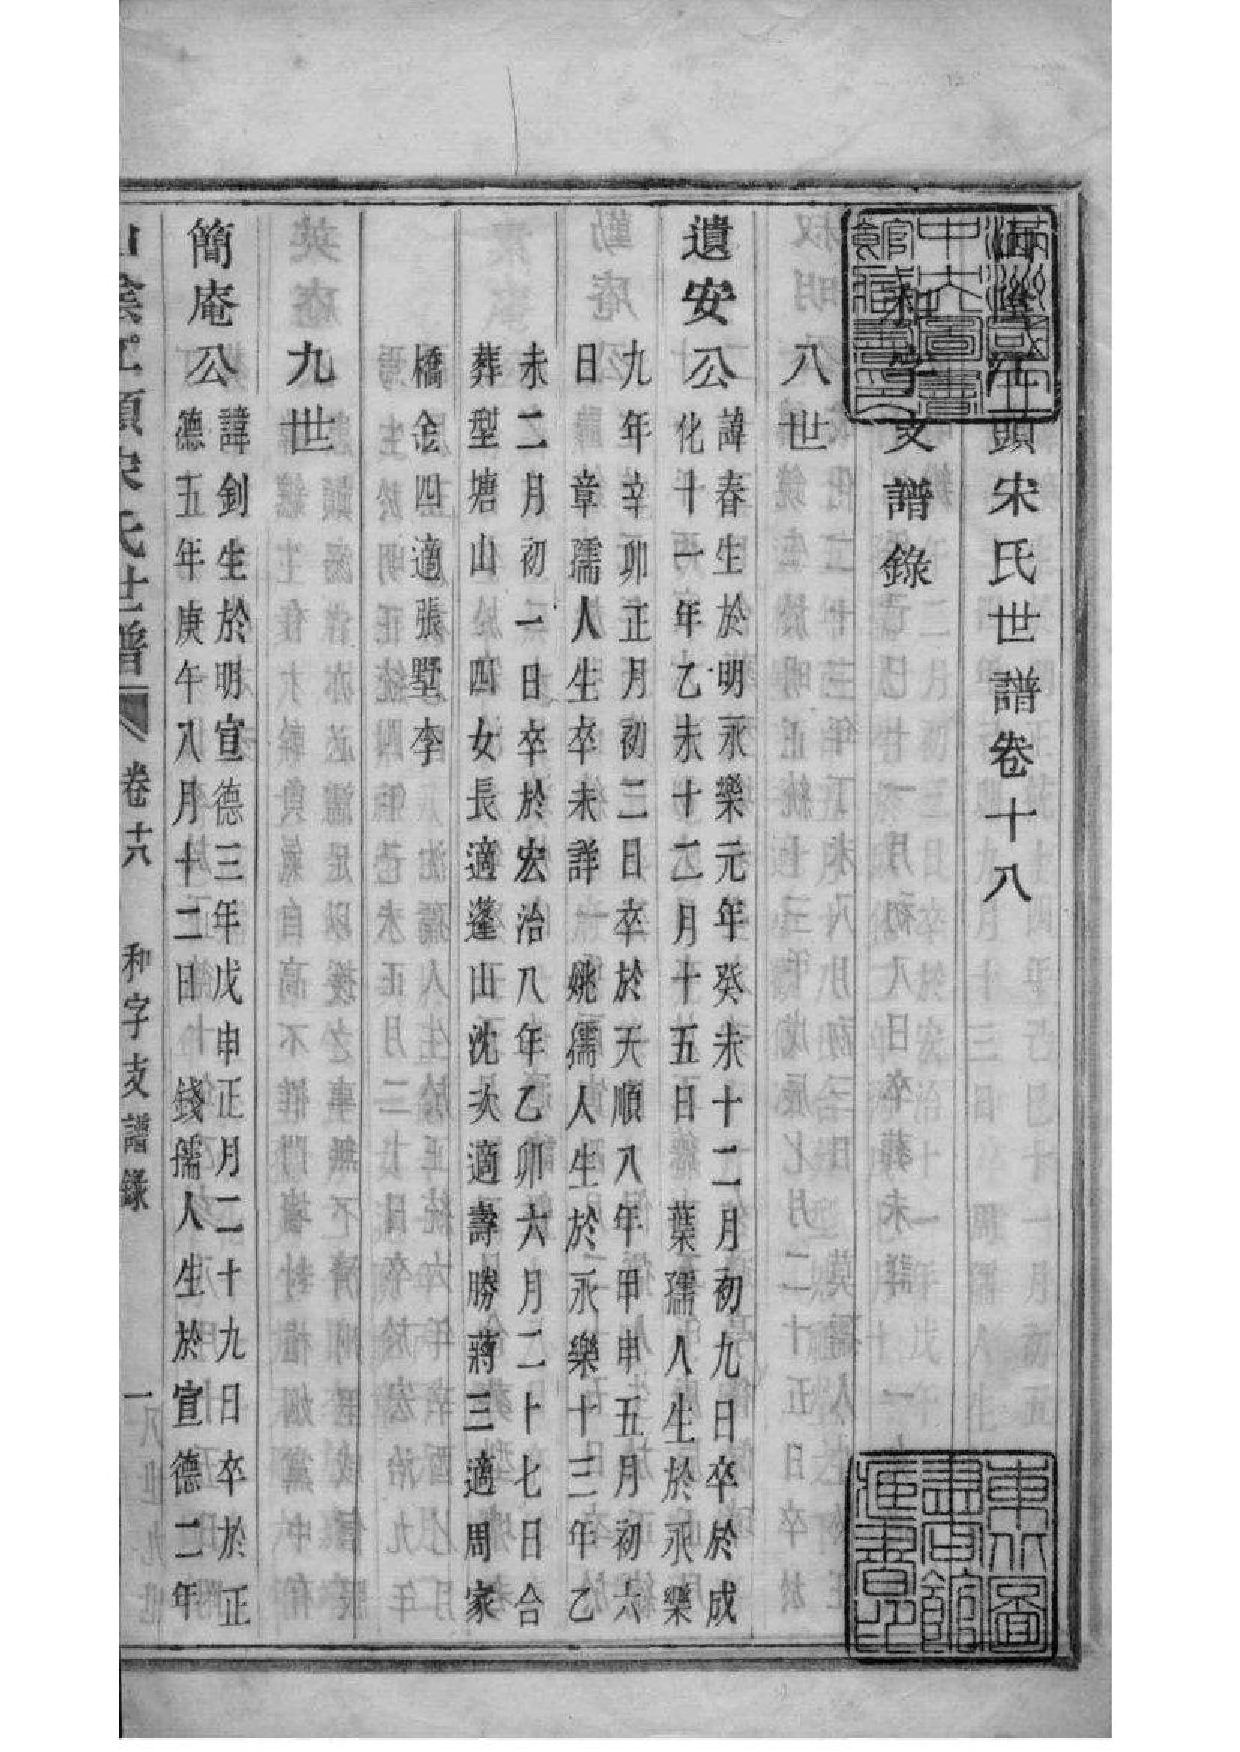 山陰江頭宋氏世譜卷十八
和字支譜錄
八世
遺安公
諱春生於明永樂元年癸未十二月初九日卒於成
化十一年乙未十二月十五日 葉孺人生於永樂
九年辛卯正月初二日卒於天順八年甲申五月初六
日 章孺人生卒未詳 姚孺人生於永樂十三年乙
未二月初一日卒於宏治八年乙卯六月二十七日合
葬型塘山四女長適蓬山沈次適壽勝蔣三適周家
橋金四適張墅李
九世
簡庵公
諱釗生於明宣德三年戊申正月二十九日卒於正
德五年庚午八月十二日 錢孺人生於宣德二年
山陰江頭宋氏世譜 卷十八 和字支譜錄 一
東北圖書館藏書印